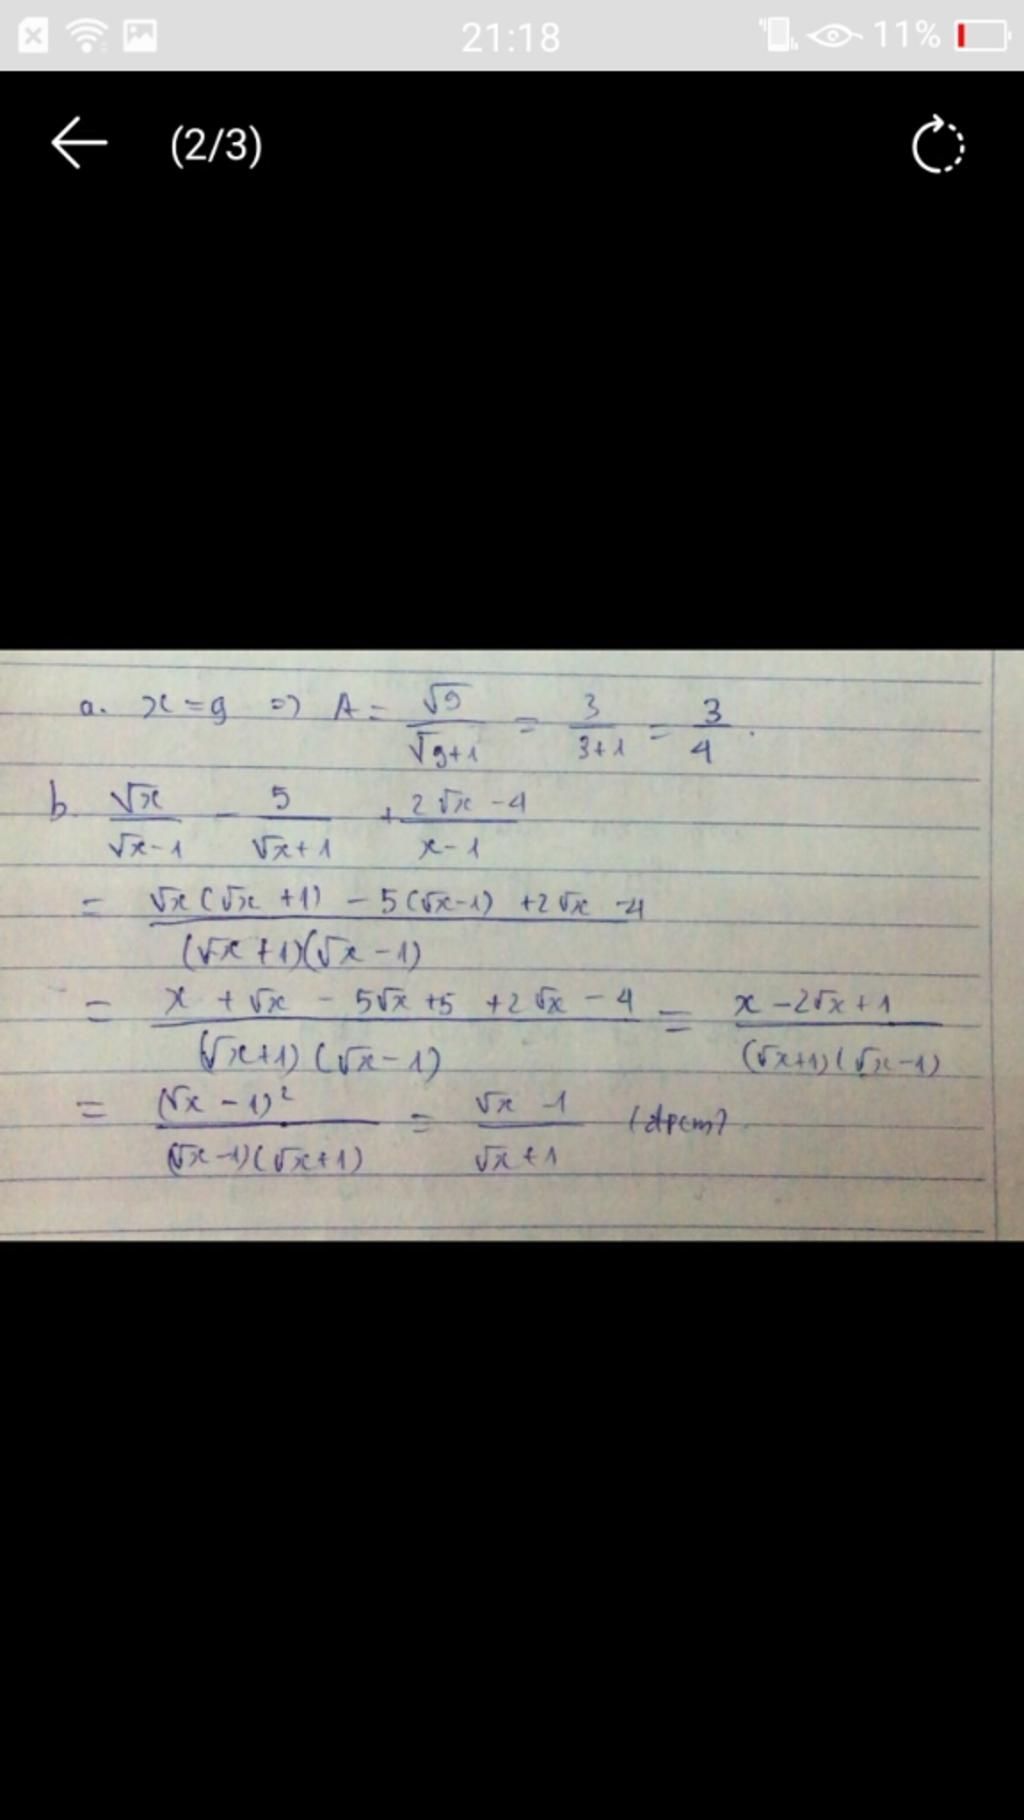 21:18 11%
(2/3)
a. x = 9 => A = √9 / √9+1 = 3 / 3+1 = 3 / 4 .
b. √x / √x-1 - 5 / √x+1 + 2√x - 4 / x-1
= √x(√x +1) - 5(√x-1) +2√x -4 / (√x +1)(√x -1)
= x + √x - 5√x +5 +2√x - 4 / (√x+1)(√x-1) = x -2√x +1 / (√x+1)(√x-1)
= (√x -1)² / (√x-1)(√x+1) = √x -1 / √x +1 (đpcm)